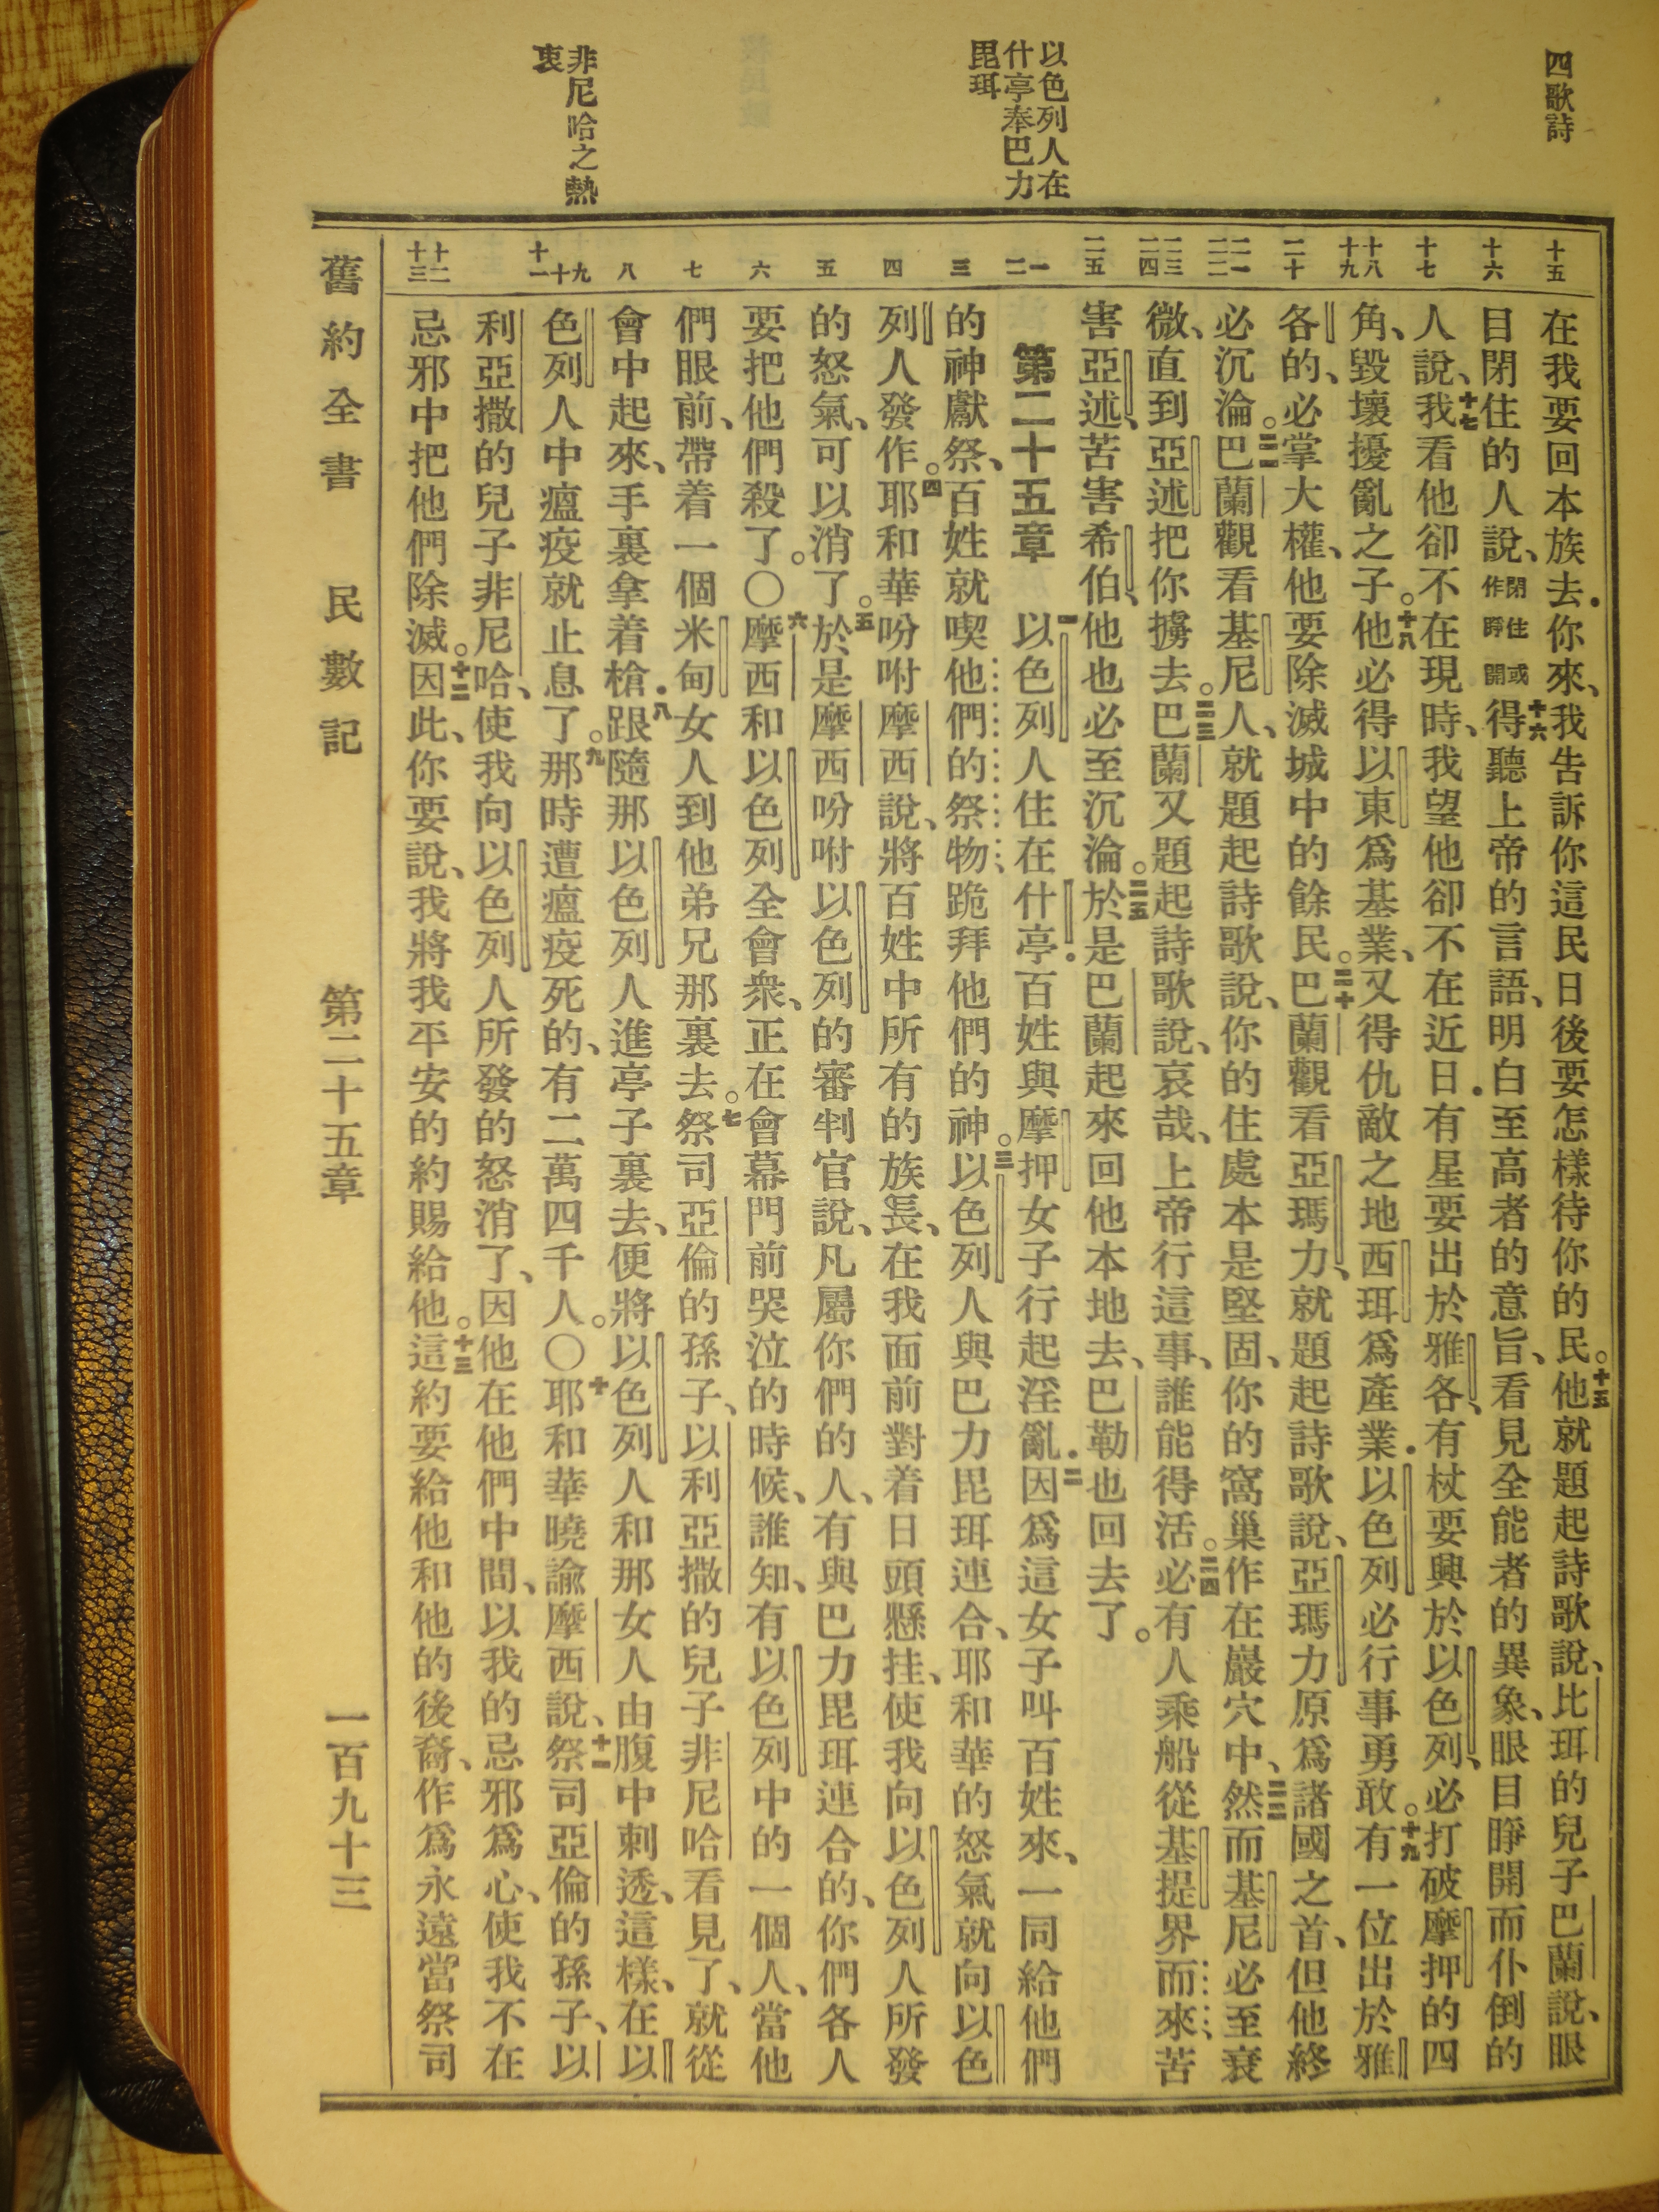 四歌詩
以色列人在
什亭奉巴力
毘珥
非尼哈之熱
衷
十五
十六
十七
十八
十九
二十
二一
二二
二三
二四
二五
一
二
三
四
五
六
七
八
九
十
十一
十二
十三
在我要回本族去．你來、我告訴你這民日後要怎樣待你的民。十五他就題起詩歌說、比珥的兒子巴蘭說、眼
目閉住的人說、閉住或作睜開十六得聽上帝的言語、明白至高者的意旨、看見全能者的異象、眼目睜開而仆倒的
人說、十七我看他卻不在現時、我望他卻不在近日．有星要出於雅各、有杖要興於以色列、必打破摩押的四
角、毀壞擾亂之子。十八他必得以東爲基業、又得仇敵之地西珥爲產業．以色列必行事勇敢。十九有一位出於雅
各的、必掌大權、他要除滅城中的餘民。二十巴蘭觀看亞瑪力、就題起詩歌說、亞瑪力原爲諸國之首、但他終
必沉淪。二一巴蘭觀看基尼人、就題起詩歌說、你的住處本是堅固、你的窩巢作在巖穴中、二二然而基尼必至衰
微、直到亞述把你擄去。二三巴蘭又題起詩歌說、哀哉、上帝行這事、誰能得活。二四必有人乘船從基提界而來、苦
害亞述、苦害希伯、他也必至沉淪。二五於是巴蘭起來回他本地去、巴勒也回去了。
第二十五章 一以色列人住在什亭．百姓與摩押女子行起淫亂．二因爲這女子叫百姓來、一同給他們
的神獻祭、百姓就喫他們的祭物、跪拜他們的神。三以色列人與巴力毘珥連合、耶和華的怒氣就向以色
列人發作。四耶和華吩咐摩西說、將百姓中所有的族長、在我面前對着日頭懸挂、使我向以色列人所發
的怒氣、可以消了。五於是摩西吩咐以色列的審判官說、凡屬你們的人、有與巴力毘珥連合的、你們各人
要把他們殺了。〇六摩西和以色列全會衆、正在會幕門前哭泣的時候、誰知、有以色列中的一個人、當他
們眼前、帶着一個米甸女人到他弟兄那裏去。七祭司亞倫的孫子、以利亞撒的兒子非尼哈看見了、就從
會中起來、手裏拿着槍．八跟隨那以色列人進亭子裏去、便將以色列人和那女人由腹中刺透、這樣、在以
色列人中瘟疫就止息了。九那時遭瘟疫死的、有二萬四千人。〇十耶和華曉諭摩西說、十一祭司亞倫的孫子、以
利亞撒的兒子非尼哈、使我向以色列人所發的怒消了、因他在他們中間、以我的忌邪爲心、使我不在
忌邪中把他們除滅。十二因此、你要說、我將我平安的約賜給他。十三這約要給他和他的後裔、作爲永遠當祭司
舊約全書 民數記 第二十五章 一百九十三